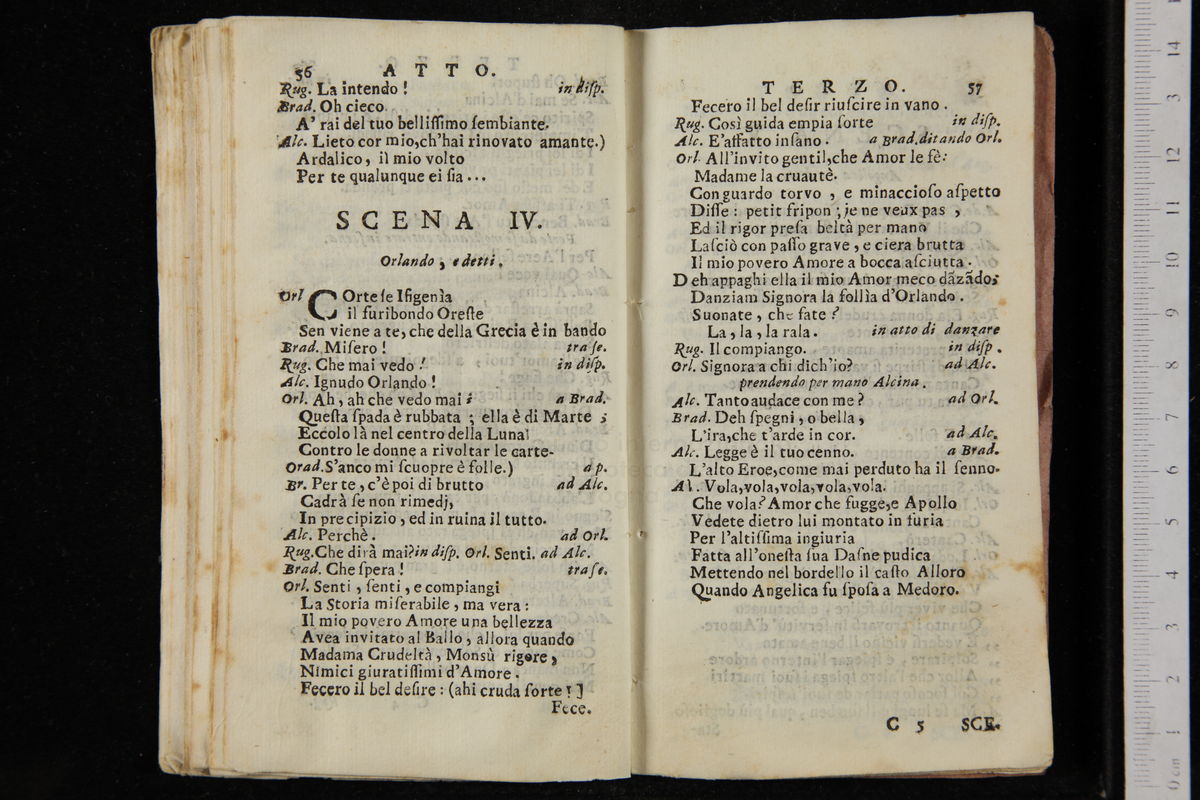 56 ATTO.
Rug. La intendo ! in diſp.
Brad. Oh cieco
A' rai del tuo belliſſimo ſembiante.
Alc. Lieto cor mio,ch'hai rinovato amante.)
Ardalico, il mio volto
Per te qualunque ei ſia...
SCENA IV.
Orlando, e detti.
Orl COrteſe Ifigenìa
il furibondo Oreſte
Sen viene a te, che della Grecia è in bando
Brad. Miſero ! tra ſe.
Rug. Che mai vedo ! in diſp.
Alc. Ignudo Orlando !
Orl. Ah, ah che vedo mai ! a Brad.
Queſta ſpada è rubbata ; ella è di Marte ;
Eccolo là nel centro della Luna
Contro le donne a rivoltar le carte-
Orad.S'anco mi ſcuopre è folle.) a p.
Br. Per te, c'è poi di brutto ad Alc.
Cadrà ſe non rimedj,
In precipizio, ed in ruina il tutto.
Alc. Perchè. ad Orl.
Rug.Che dirà mai?in diſp. Orl. Senti. ad Alc.
Brad. Che ſpera ! tra ſe.
Orl. Senti, ſenti, e compiangi
La Storia miſerabile, ma vera :
Il mio povero Amore una bellezza
Avea invitato al Ballo, allora quando
Madama Crudeltà, Monsù rigore,
Nimici giuratiſſimi d'Amore.
Fecero il bel deſire : (ahi cruda ſorte ! ]
Fece.
TERZO. 57
Fecero il bel deſir riuſcire in vano.
Rug. Così guida empia ſorte in diſp.
Alc. E'affatto inſano. a Brad.ditando Orl.
Orl. All'invito gentil,che Amor le fè:
Madame la cruautè.
Con guardo torvo, e minaccioſo aſpetto
Diſſe : petit fripon ; je ne veux pas,
Ed il rigor preſa beltà per mano
Laſciò con paſſo grave, e ciera brutta
Il mio povero Amore a bocca aſciutta.
Deh appaghi ella il mio Amor meco dãzãdo;
Danziam Signora la follìa d'Orlando.
Suonate, che fate ?
La, la, la rala. in atto di danzare
Rug. Il compiango. in diſp.
Orl. Signora a chi dich'io? ad Alc.
prendendo per mano Alcina.
Alc. Tanto audace con me ? ad Orl.
Brad. Deh ſpegni, o bella,
L'ira,che t'arde in cor. ad Alc.
Alc. Legge è il tuo cenno. a Brad.
L'alto Eroe,come mai perduto ha il ſenno.
Al. Vola,vola,vola,vola,vola.
Che vola? Amor che fugge,e Apollo
Vedete dietro lui montato in furia
Per l'altiſſima ingiuria
Fatta all'oneſta ſua Dafne pudica
Mettendo nel bordello il caſto Alloro
Quando Angelica fu ſpoſa a Medoro.
C 5 SCE.